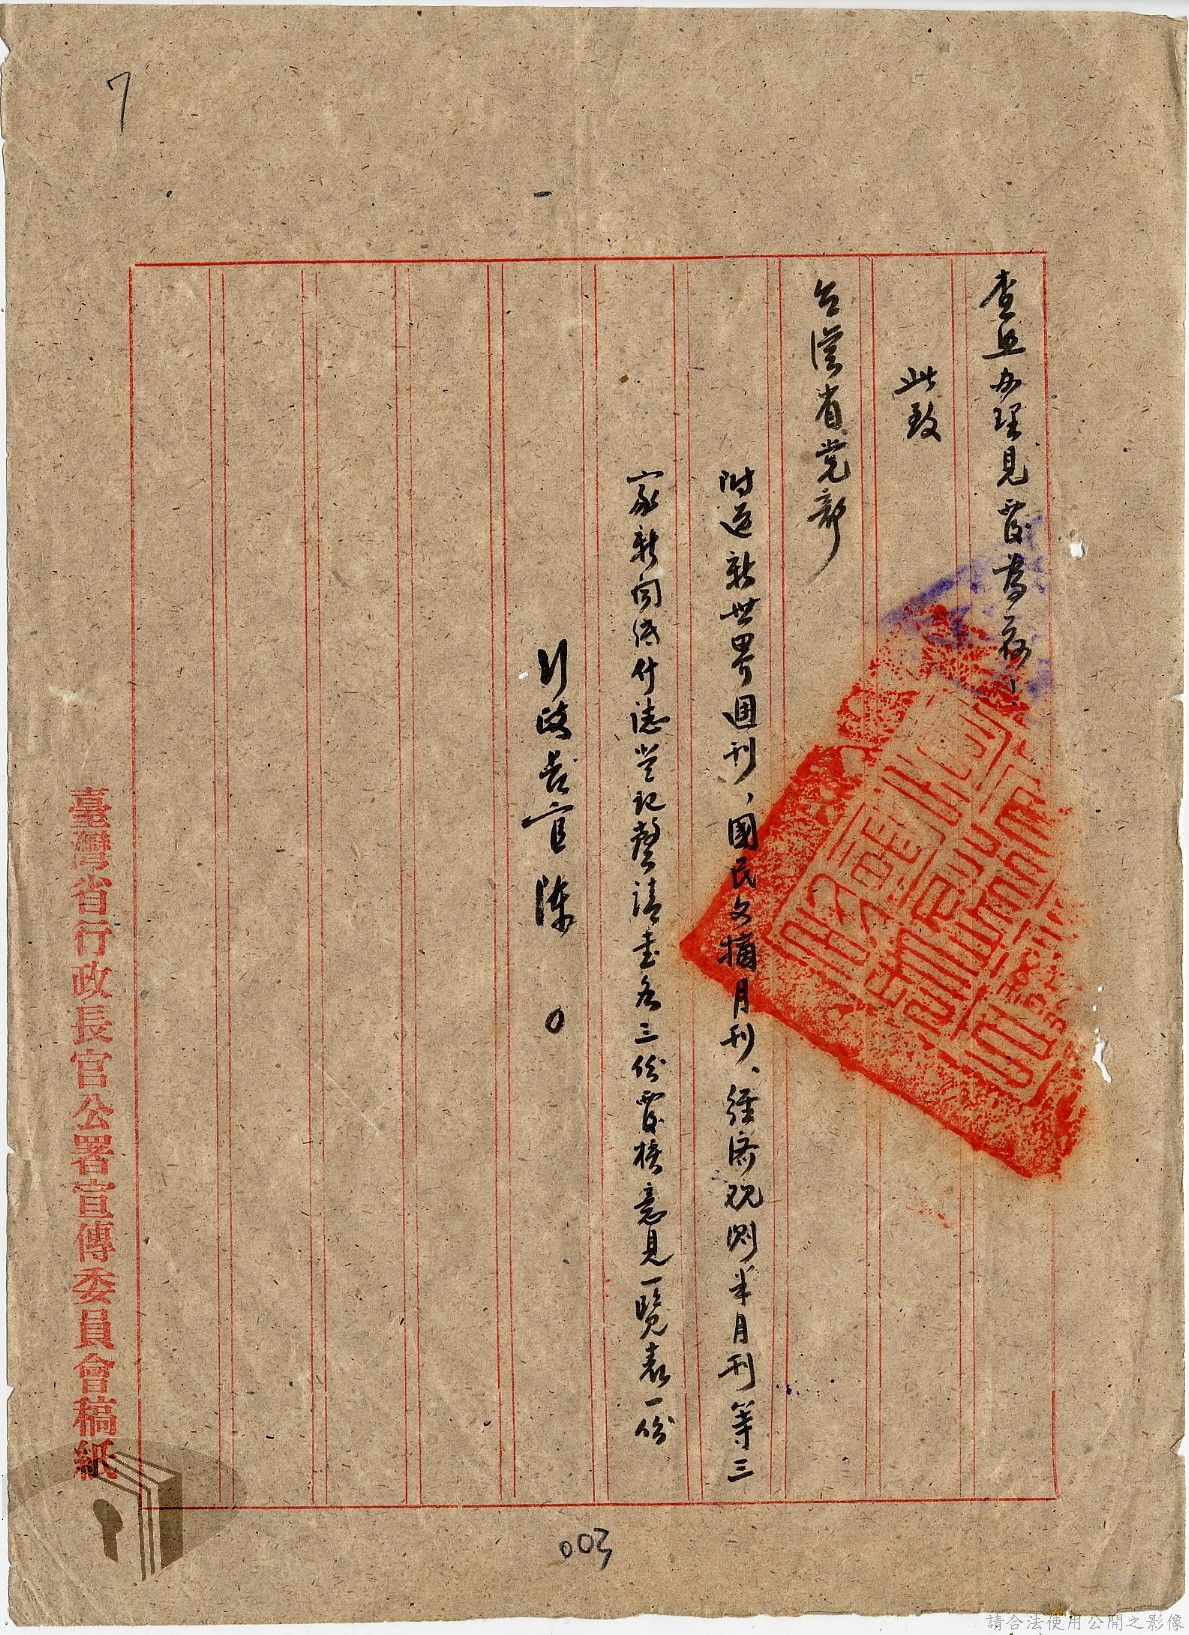 7
查照办理見覆为荷！
此致
台湾省党部
附送新世界週刊、國民文摘月刊、经济观测半月刊等三
家新闻纸什誌登记聲請書各三份覆核意見一覽表一份
行政长官陳 0
臺灣省行政長官公署宣傳委員會稿紙
003
請合法使用公開之影像